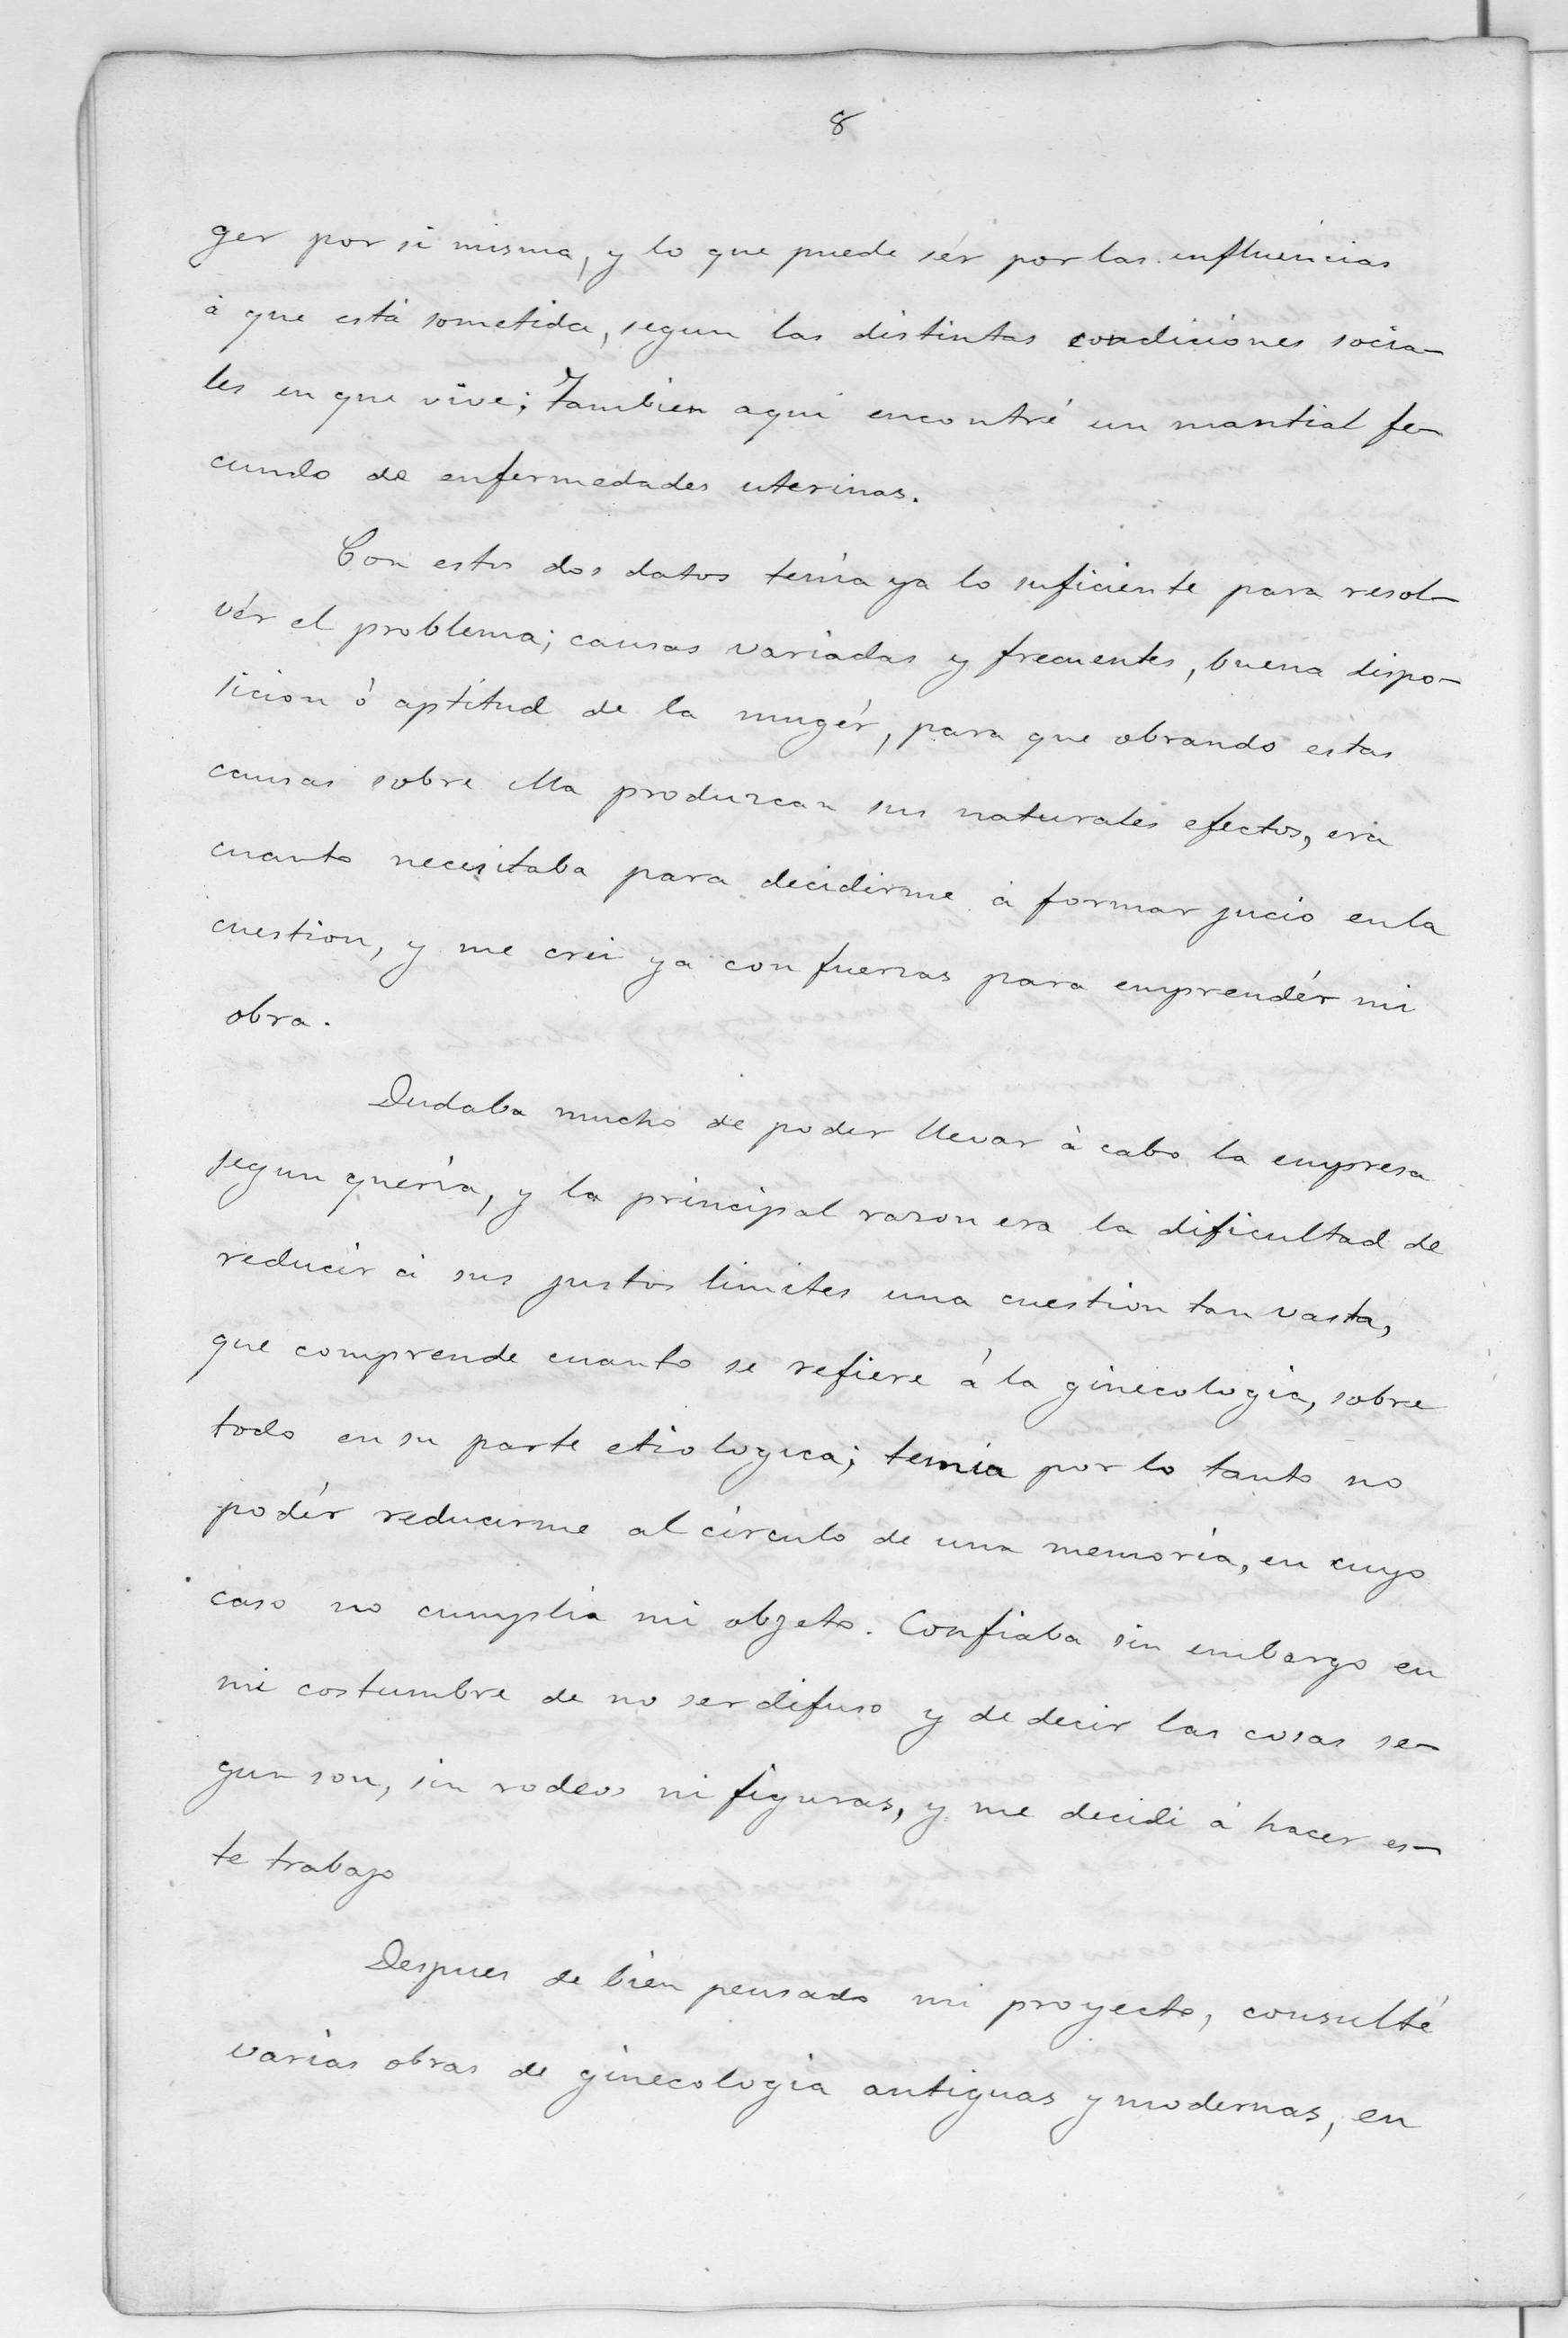 8
ger por si misma, y lo que puede sér por las influencias
á que está sometida, segun las distintas condiciones socia-
les en que vive; Tambien aqui encontré un mantial fe-
cundo de enfermedades uterinas.
Con estos dos datos tenia ya lo suficiente para resol-
vér el problema; causas variadas y frecuentes, buena dispo-
sicion ó aptitud de la mugér, para que obrando estas
causas sobre ella produzcan sus naturales efectos, era
cuanto necesitaba para decidirme á formar jucio en la
cuestion, y me crei ya con fuerzas para emprendér mi
obra.
Dudaba mucho de poder llevar à cabo la empresa
segun queria, y la principal razon era la dificultad de
reducir á sus justos limites una cuestion tan vasta,
que comprende cuanto se refiere á la ginecologia, sobre
todo en su parte etiologica; temia por lo tanto no
podér reducirme al círculo de una memoria, en cuyo
caso no cumplia mi objeto. Confiaba sin embargo en
mi costumbre de no ser difuso y de decir las cosas se-
gun son, sin rodeos ni figuras, y me decidi á hacer es-
te trabajo
Despues de bien pensado mi proyecto, consulté
varias obras de ginecologia antiguas y modernas, en